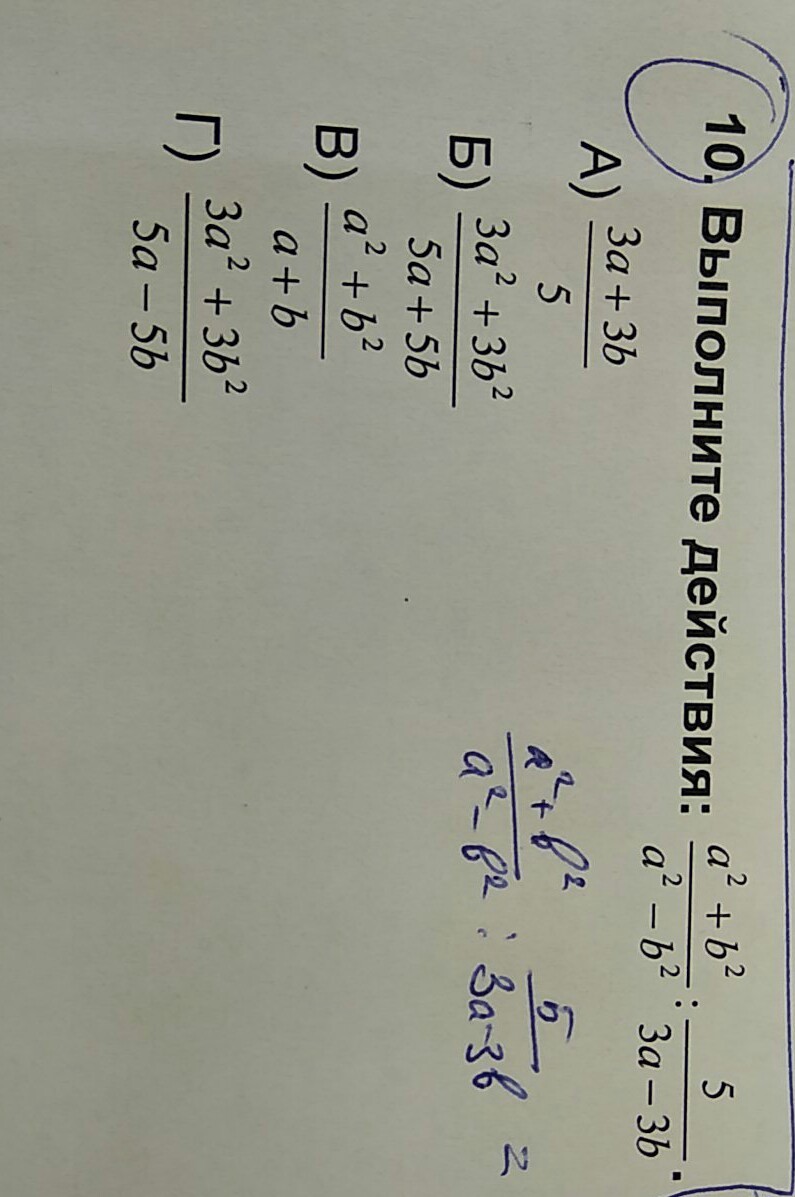 10. Выполните действия: \frac{a^2+b^2}{a^2-b^2} : \frac{5}{3a-3b}.
А) \frac{3a+3b}{5}
Б) \frac{3a^2+3b^2}{5a+5b}
В) \frac{a^2+b^2}{a+b}
Г) \frac{3a^2+3b^2}{5a-5b}
\frac{a^2+b^2}{a^2-b^2} : \frac{5}{3a-3b} =